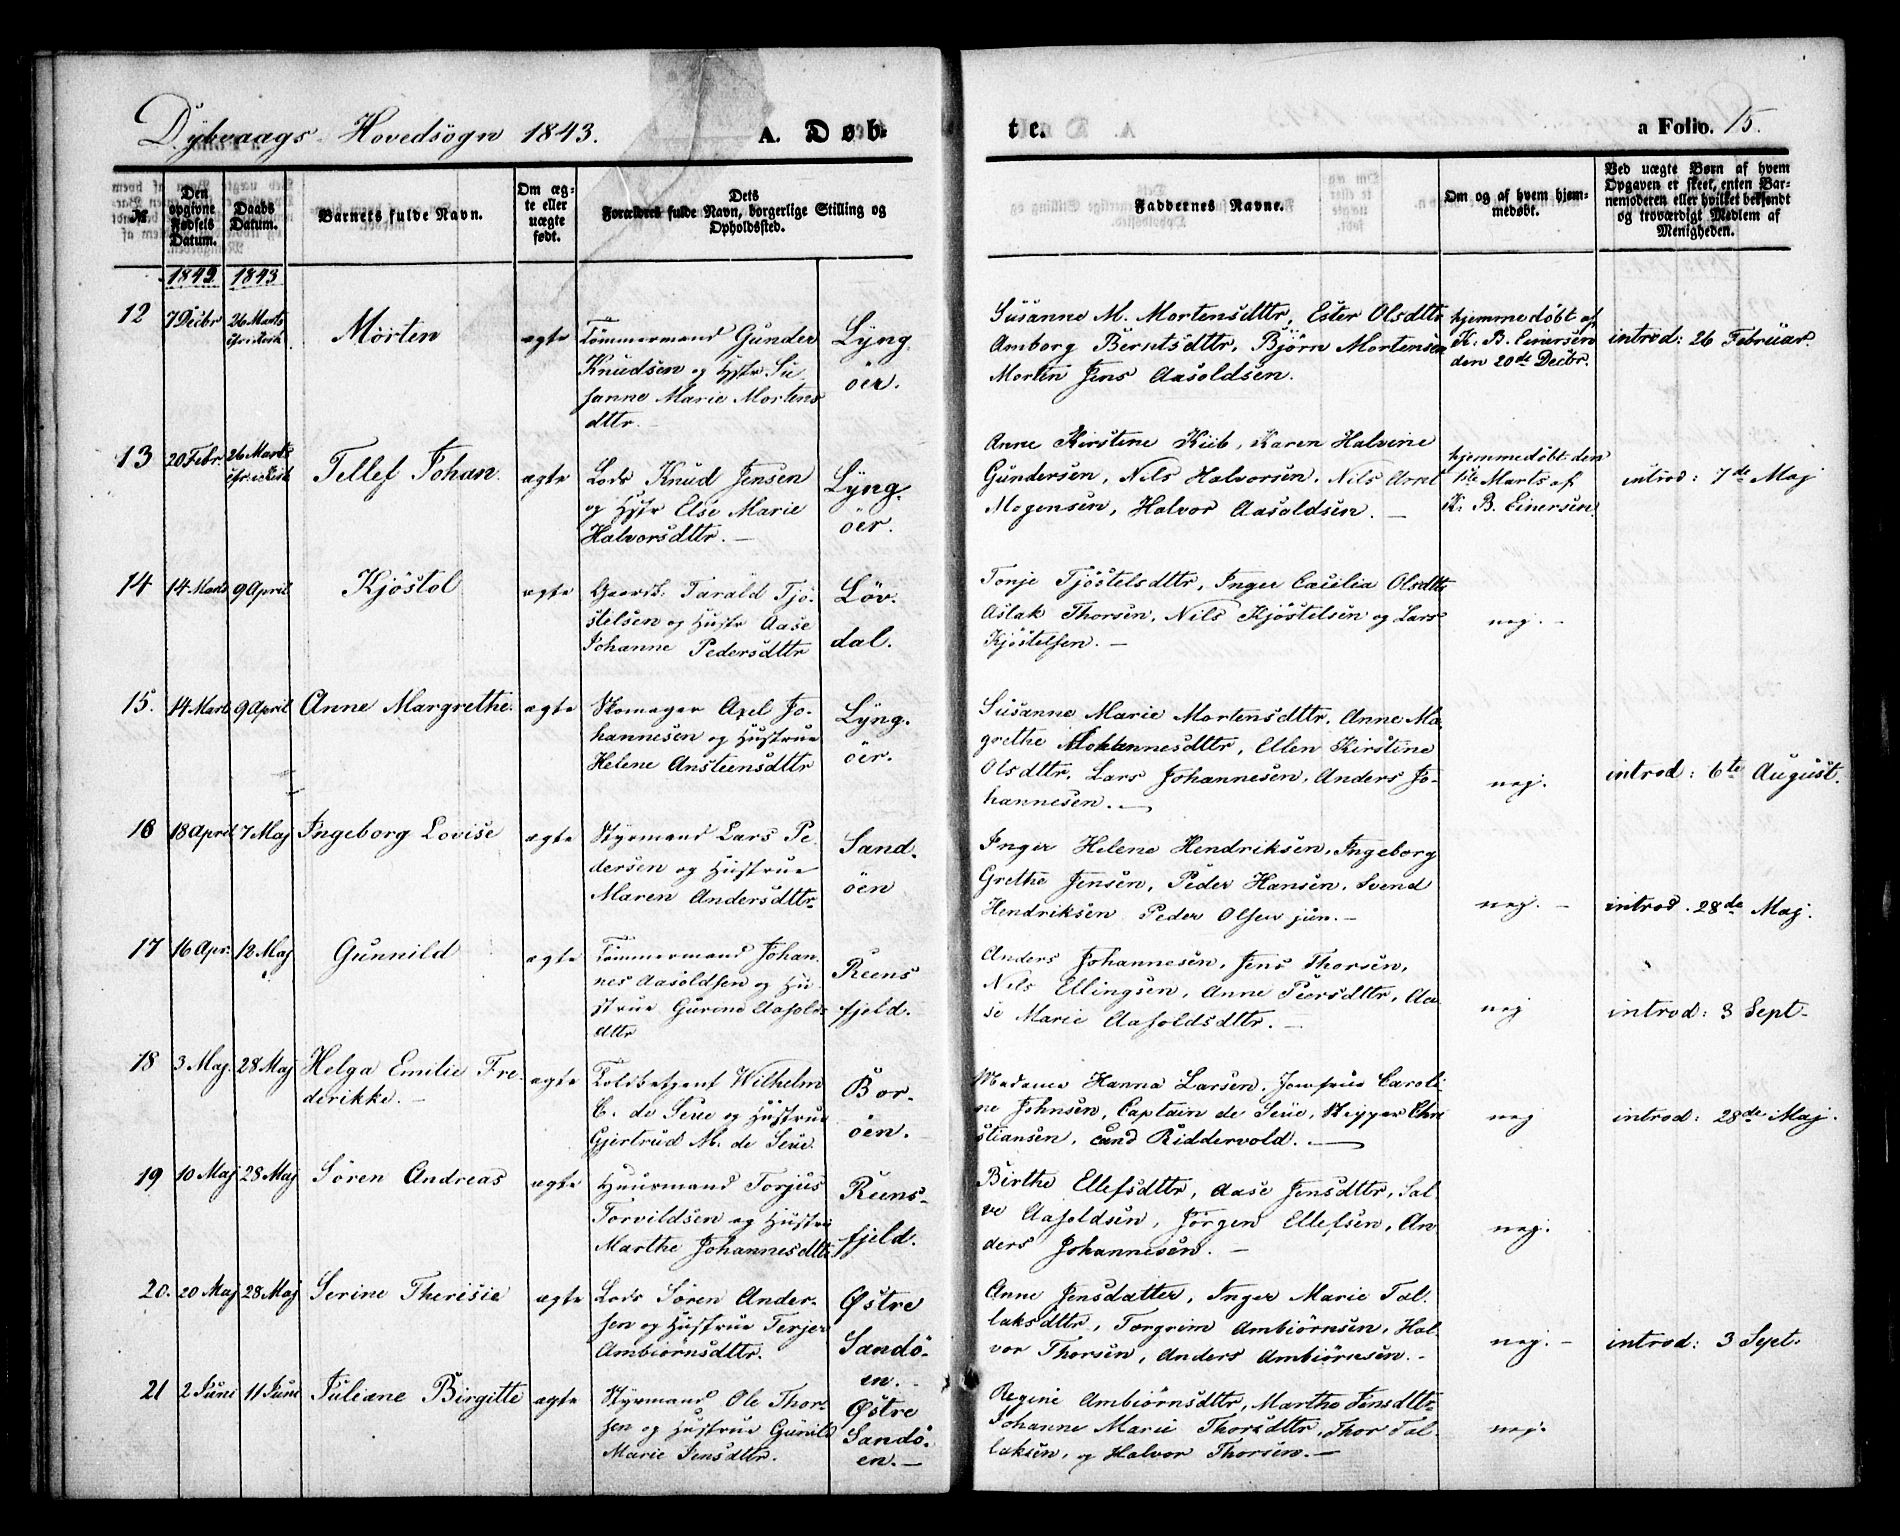 Dybvaags Hovedsogn 1843.
A. Døb-
te.
a Folio. 15.
№
Den opgivne Fødsels Datum.
Daabs Datum.
Barnets fulde Navn.
Om ægte eller uægte født.
Dets Forældres fulde Navn, borgerlige Stilling og Opholdssted.
Faddernes Navne.
Om og af hvem hjemmedøbt.
Ved uægte Børn af hvem Opgaven er skeet, enten Barnemoderen eller hvilket bekjendt og troværdigt Medlem af Menigheden.
1842 1843
12 7 Decbr 26 Marts Morten ægte
Tömmermand Gunder
Knudsen og Hstr Su-
sanne Marie Mortens
dttr.
Lyng
öer.
Susanne M. Mortensdttr, Ester Olsdttr
Amborg Berntsdttr, Björn Mortensen
Morten Jens Aasoldsen.
hjemmedøbt af
K. B. Einersen
den 20de Decbr.
introd: 26 Februar.
13 20 Febr. 26 Marts Tellef Johan. ægte
Lods Knud Jensen
og Hstr Else Marie
Halvorsdttr.
Lyng.
öer.
Anne Kirstine Kiib, Karen Halvine
Gundersen, Nils Halvorsen, Nils Arnt
Mogensen, Halvor Aasoldsen.
hjemmedøbt den
Marts af
K. B. Einersen.
introd: 7de Maj
14 14 Marts 9 April Kjöstol ægte
Tarald Tjö-
stelsen og Hustr Aase
Johanne Pedersdttr
Löv-
dal.
Tonje Tjöstelsdttr, Inger Cecilia Olsdttr
Aslak Thorsen, Nils Kjöstelsen og Lars
Kjöstelsen.
nej.
15. 14 Marts 9 April Anne Margrethe. ægte
Skomager Axel Jo-
hannesen og Hustrue
Helene Ansteensdttr
Lyng.
öer.
Susanne Marie Mortensdttr, Anne Ma
grethe Johannesdttr, Ellen Kirstine
Olsdttr, Lars Johannesen, Anders Jo-
hannesen.
nej.
introd: 6te August.
16 18 April 7 Maj Ingeborg Lovise ægte
Styrmand Lars Pe-
dersen og Hustrue
Maren Andersdttr
Sand.
öen
Inger Helene Hendriksen, Ingeborg
Grethe Jensen, Peder Hansen, Svend
Hendriksen Peder Olsen jun.
nej.
introd. 28de Maj.
17 16 Apr. 12 Maj Gunnild ægte
Tömmermand Johan
nes Aasoldsen og Hu
strue Gurine Aasolds
dttr
Reens
fjeld.
Anders Johannesen, Jens Thorsen,
Nils Ellingsen, Anne Peersdttr, Aa
se Marie Aasoldsdttr.
nej
introd: 3 Sept
18 3 Maj. 28 Maj Helga Emilie Fre
derikke. ægte
Toldbetjent Wilhelm
C. de Seue og Hustrue
Gjertrud M. de Seue.
Bor-
öen.
Madame Hanna Larsen, Jomfrue Caroli
ne Johnsen, Captain de Seue, Skipper Chri
stiansen, Cand Riddervold.
nej
introd: 28de Maj.
19 10 Maj 28 Maj Sören Andreas ægte
Huusmand Torjus
Torvildsen og Hustru
Marthe Johannesdttr
Reens-
fjeld.
Birthe Ellefsdttr, Aase Jensdttr, Sal-
ve Aasoldsen, Jörgen Ellefsen, An
ders Johannesen.
nej.
20. 20 Maj 28 Maj Serine Theresie ægte
Lods Sören Ander-
sen og Hustrue Terjer
Ambiörnsdttr.
Østre
Sandö-
en.
Anne Jensdatter, Inger Marie Tal-
laksdttr, Torgrim Ambiörnsen, Hal-
vor Thorsen, Anders Ambiörnsen.
nej.
introd: 3 Sept.
21 2 Juni 11 Juni Juliane Birgitte ægte
Styrmand Ole Thor-
sen og Hustrue Gunild
Marie Jensdttr.
Østre
Sandö-
en.
Regine Ambiörnsdttr, Marthe Jensdttr
Johanne Marie Thorsdttr, Thor Tal-
laksen, og Halvor Thorsen.
nej.